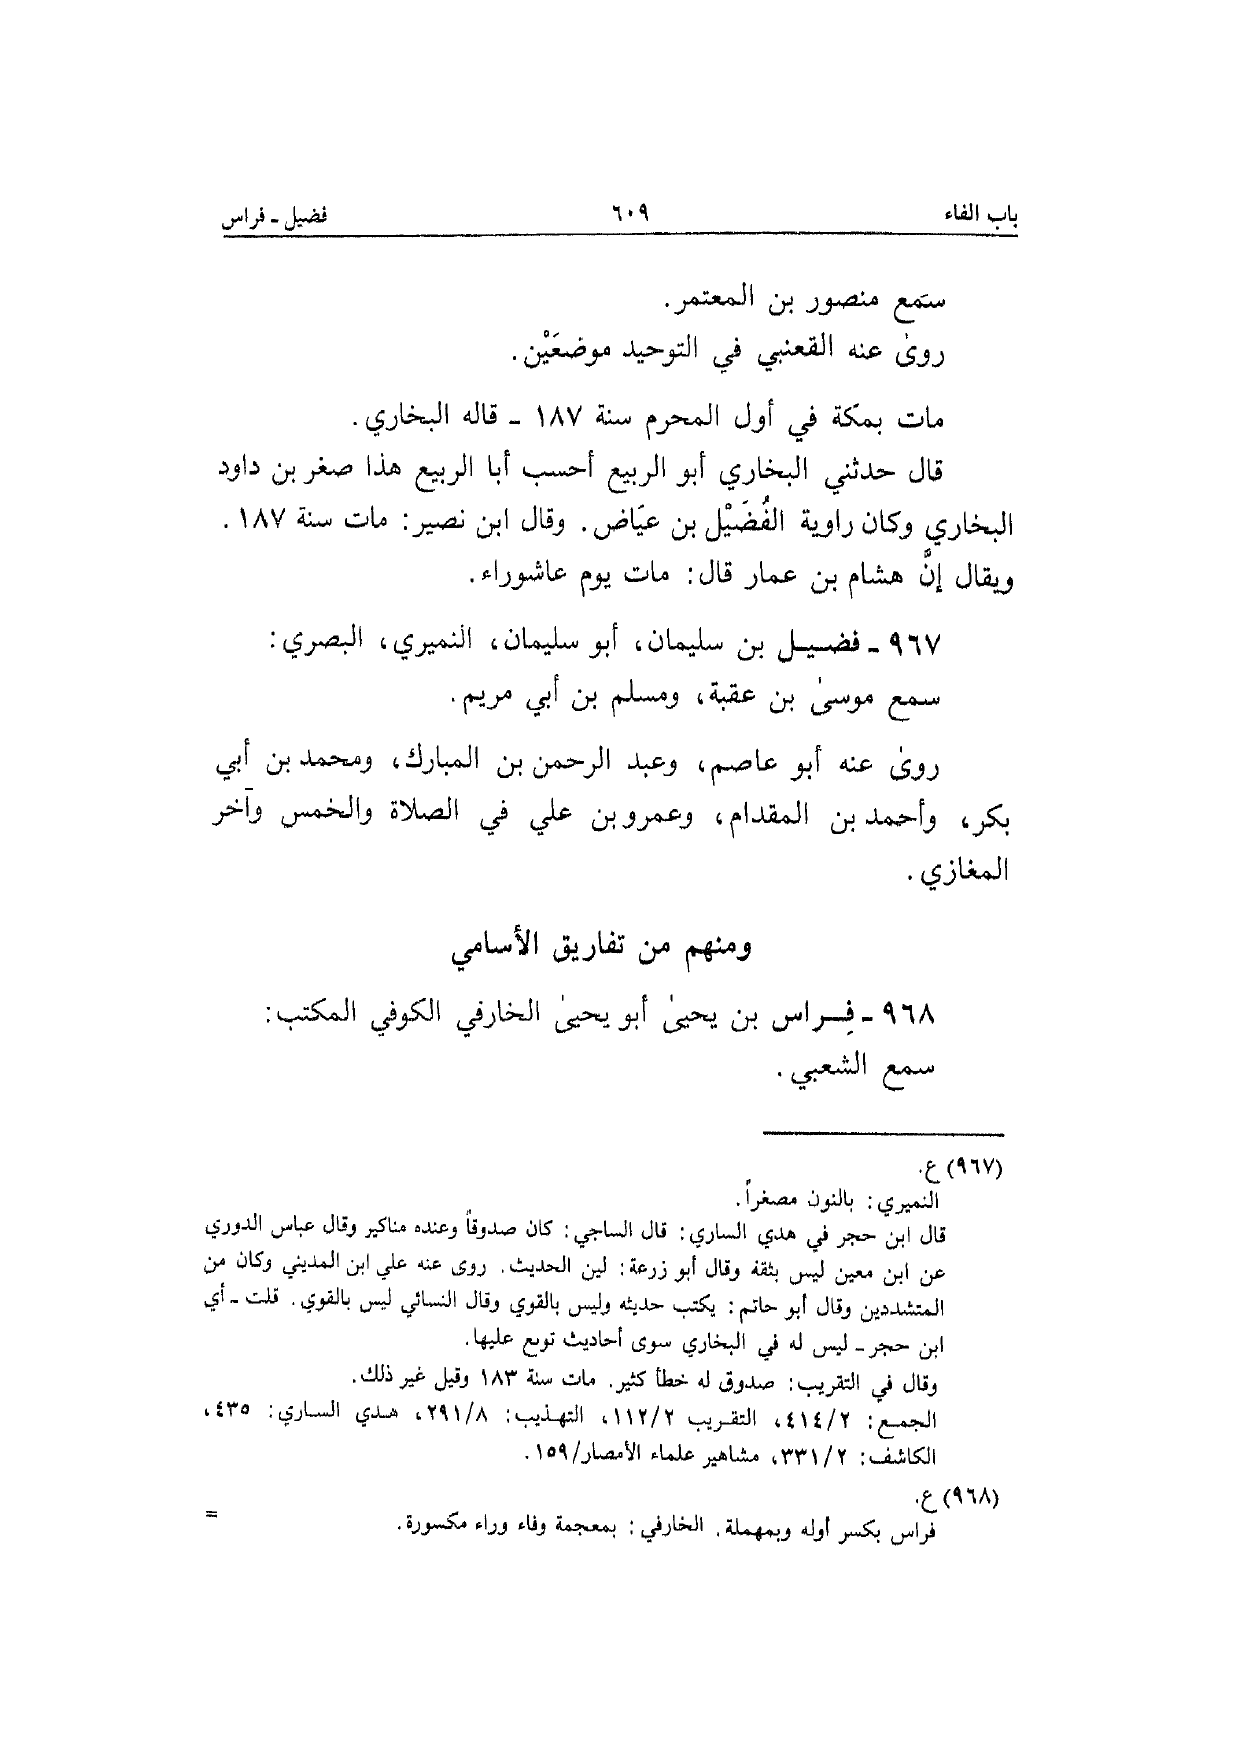 باب الفاء ٦٠٩ فضيل ـ فراس
سمع منصور بن المعتمر.
روىٰ عنه القعنبي في التوحيد موضعَيْن.
مات بمكة في أول المحرم سنة ١٨٧ ـ قاله البخاري.
قال حدثني البخاري أبو الربيع أحسب أبا الربيع هذا صغر بن داود
البخاري وكان راوية الفُضَيْل بن عيَاض. وقال ابن نصير: مات سنة ١٨٧.
ويقال إنَّ هشام بن عمار قال: مات يوم عاشوراء.
٩٦٧ ـ فضيل بن سليمان، أبو سليمان، النميري، البصري:
سمع موسىٰ بن عقبة، ومسلم بن أبي مريم.
روىٰ عنه أبو عاصم، وعبد الرحمن بن المبارك، ومحمد بن أبي
بكر، وأحمد بن المقدام، وعمرو بن علي في الصلاة والخمس وآخر
المغازي.
ومنهم من تفاريق الأسامي
٩٦٨ ـ فِراس بن يحيىٰ أبو يحيىٰ الخارفي الكوفي المكتب:
سمع الشعبي.
(٩٦٧) ع.
النميري: بالنون مصغراً.
قال ابن حجر في هدي الساري: قال الساجي: كان صدوقاً وعنده مناكير وقال عباس الدوري
عن ابن معين ليس بثقة وقال أبو زرعة: لين الحديث. روى عنه علي ابن المديني وكان من
المتشددين وقال أبو حاتم: يكتب حديثه وليس بالقوي وقال النسائي ليس بالقوي. قلت ـ أي
ابن حجر ـ ليس له في البخاري سوى أحاديث توبع عليها.
وقال في التقريب: صدوق له خطأ كثير. مات سنة ١٨٣ وقيل غير ذلك.
الجمع: ٤١٤/٢، التقريب ١١٢/٢، التهذيب: ٢٩١/٨، هدي الساري: ٤٣٥،
الكاشف: ٣٣١/٢، مشاهير علماء الأمصار/١٥٩.
(٩٦٨) ع.
فراس بكسر أوله وبمهملة. الخارفي: بمعجمة وفاء وراء مكسورة.
=